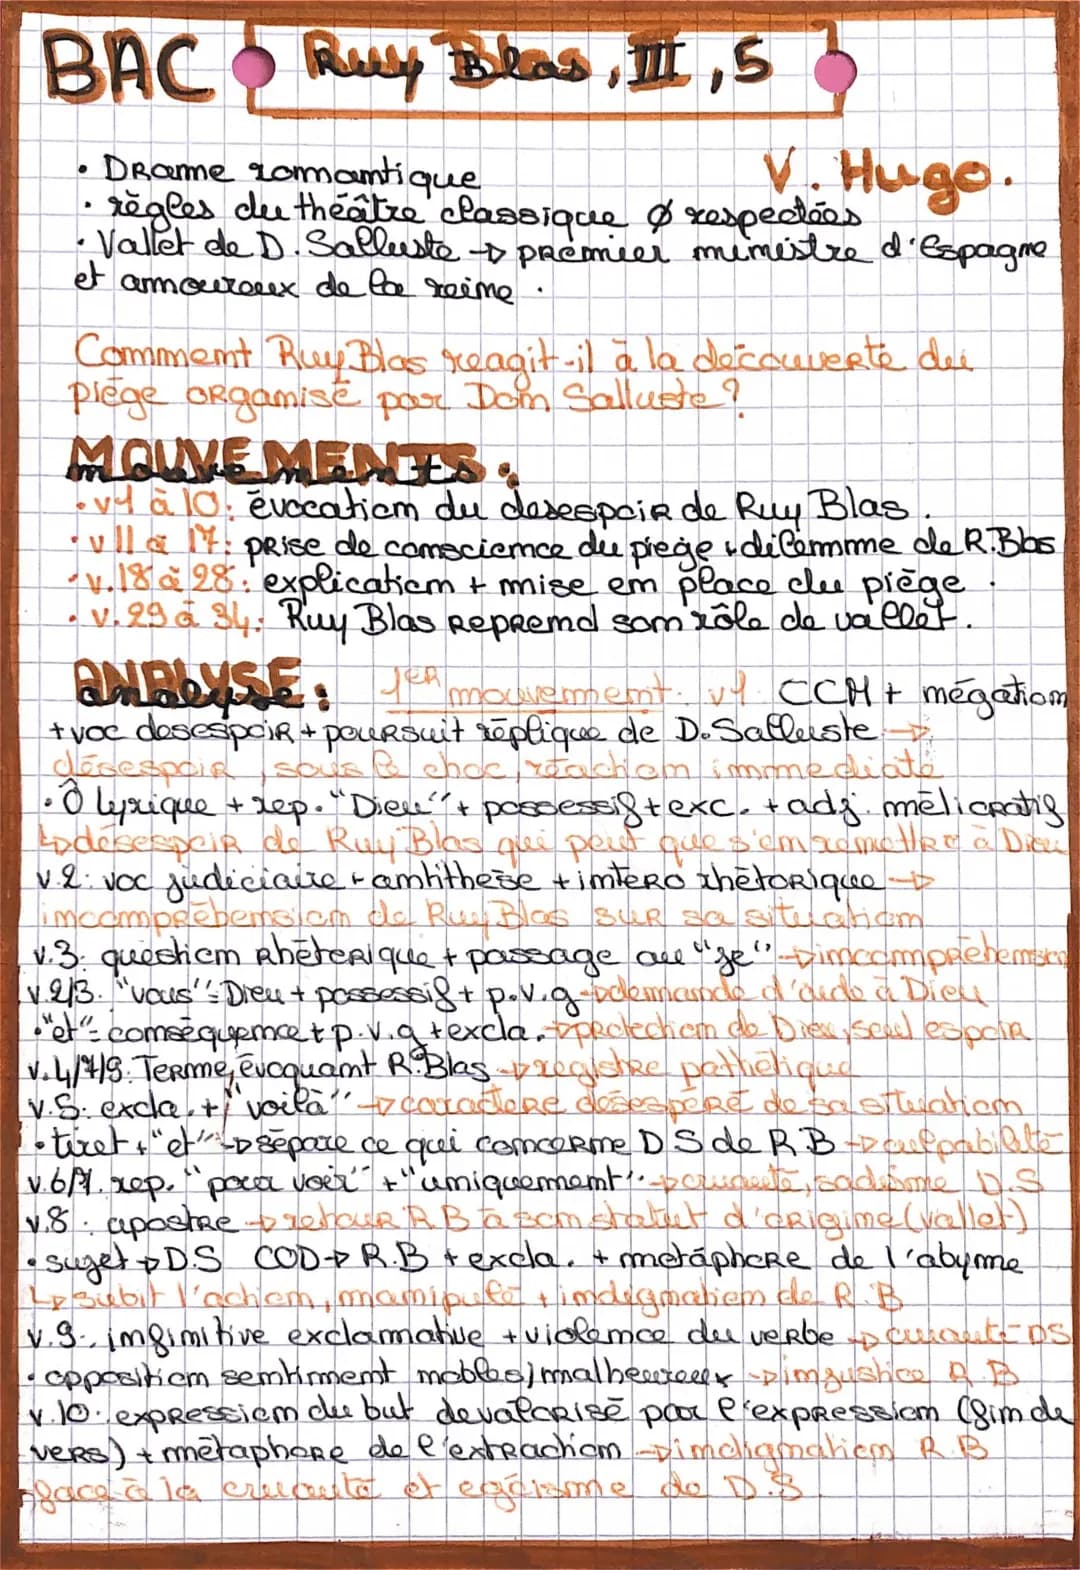 BAC Ruy Blas, III, 5
V. Hugo.
• Drame romantique
• règles du théâtre classique Ø respectées
• Vallet de D. Salluste → premier ministre d'Espagne
et amoureux de la reine.
Comment Ruy Blas reagit-il à la découverte du
piège organisé par Dom Salluste ?
MOUVEMENTS :
mouvements
• v1 à 10: évocation du desespoir de Ruy Blas.
• v11 à 17: prise de conscience du piege + dilemme de R.Blas
• v.18 à 28: explication + mise en place du piège.
• v.29 à 34: Ruy Blas Reprend son rôle de vallet.
ANALYSE :
analyse
1er mouvement. v1. CCM + négation
+ voc desespoir + poursuit réplique de D. Salluste →
désespoir, sous le choc, réaction immediate
• Ô lyrique + rep. "Dieu" + possessif + exc. + adj. mélioratif
↳ désespoir de Ruy Blas qui peut que s'en remettre à Dieu
v.2: voc judiciaire + antithèse + intero rhétorique →
incompréhension de Ruy Blas sur sa situation
v.3: question Rhéterique + passage au "je" → incompréhension
v.2/3. "vous" = Dieu + possessif + p.v.g → demande d'aide à Dieu
• "et" = conséquence + p.v.g + excla. → protection de Dieu, seul espoir
v.4/7/8: Terme évoquant R.Blas → registre pathétique
v.5: excla. + "voilà" → caractere désespéré de sa situation
• tiret + "et" → sépare ce qui concerne DS de R.B → culpabilité
v.6/7. rep. "pour voir" + "uniquement". → cruauté, sadisme D.S
v.8: apostre → retour R.B à son statut d'origine (vallet)
• sujet → D.S COD → R.B + excla. + métaphore de l'abyme
↳ subit l'action, manipulé + indignation de R.B
v.9: infinitive exclamative + violence du verbe → cruauté DS
• opposition sentiment nobles/malheureux → injustice R.B
v.10: expression du but devalorisé par l'expression (fin de
vers) + métaphore de l'extraction → indignation R.B
face à la cruauté et egoïsme de D.S.